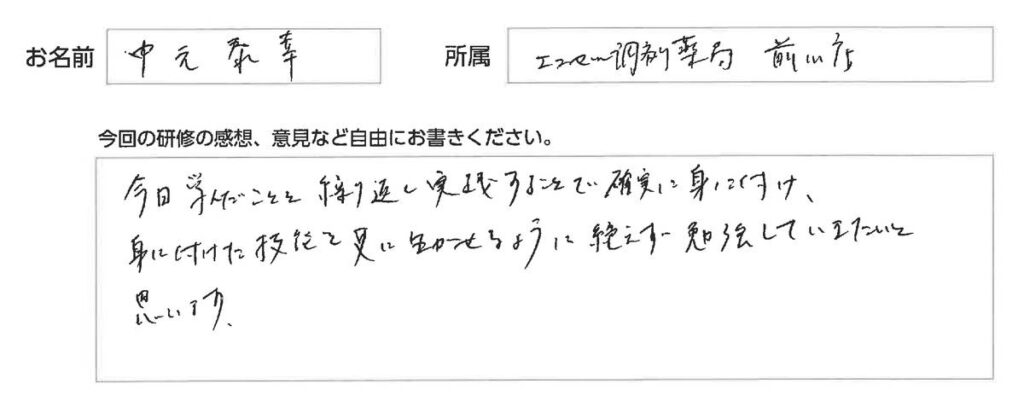 お名前 中元 泰幸 所属 エンゼル調剤薬局 前川店
今回の研修の感想、意見など自由にお書きください。
今日学んだことを繰り返し実践することで確実に身に付け、
身に付けた技能を更に生かせるように絶えず勉強していきたいと
思います。